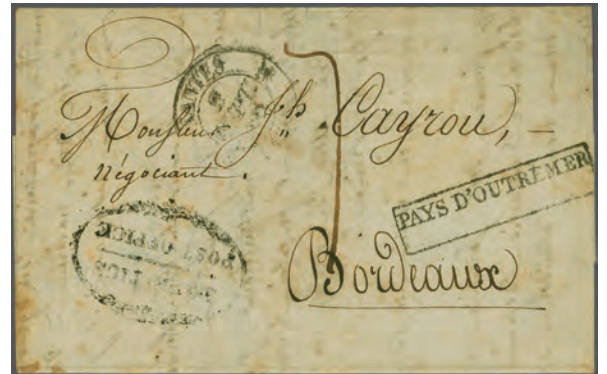 Monsieur Jh. Cayrou, –
Négociant.
PAYS D'OUTREMER
POST OFFICE
Bordeaux